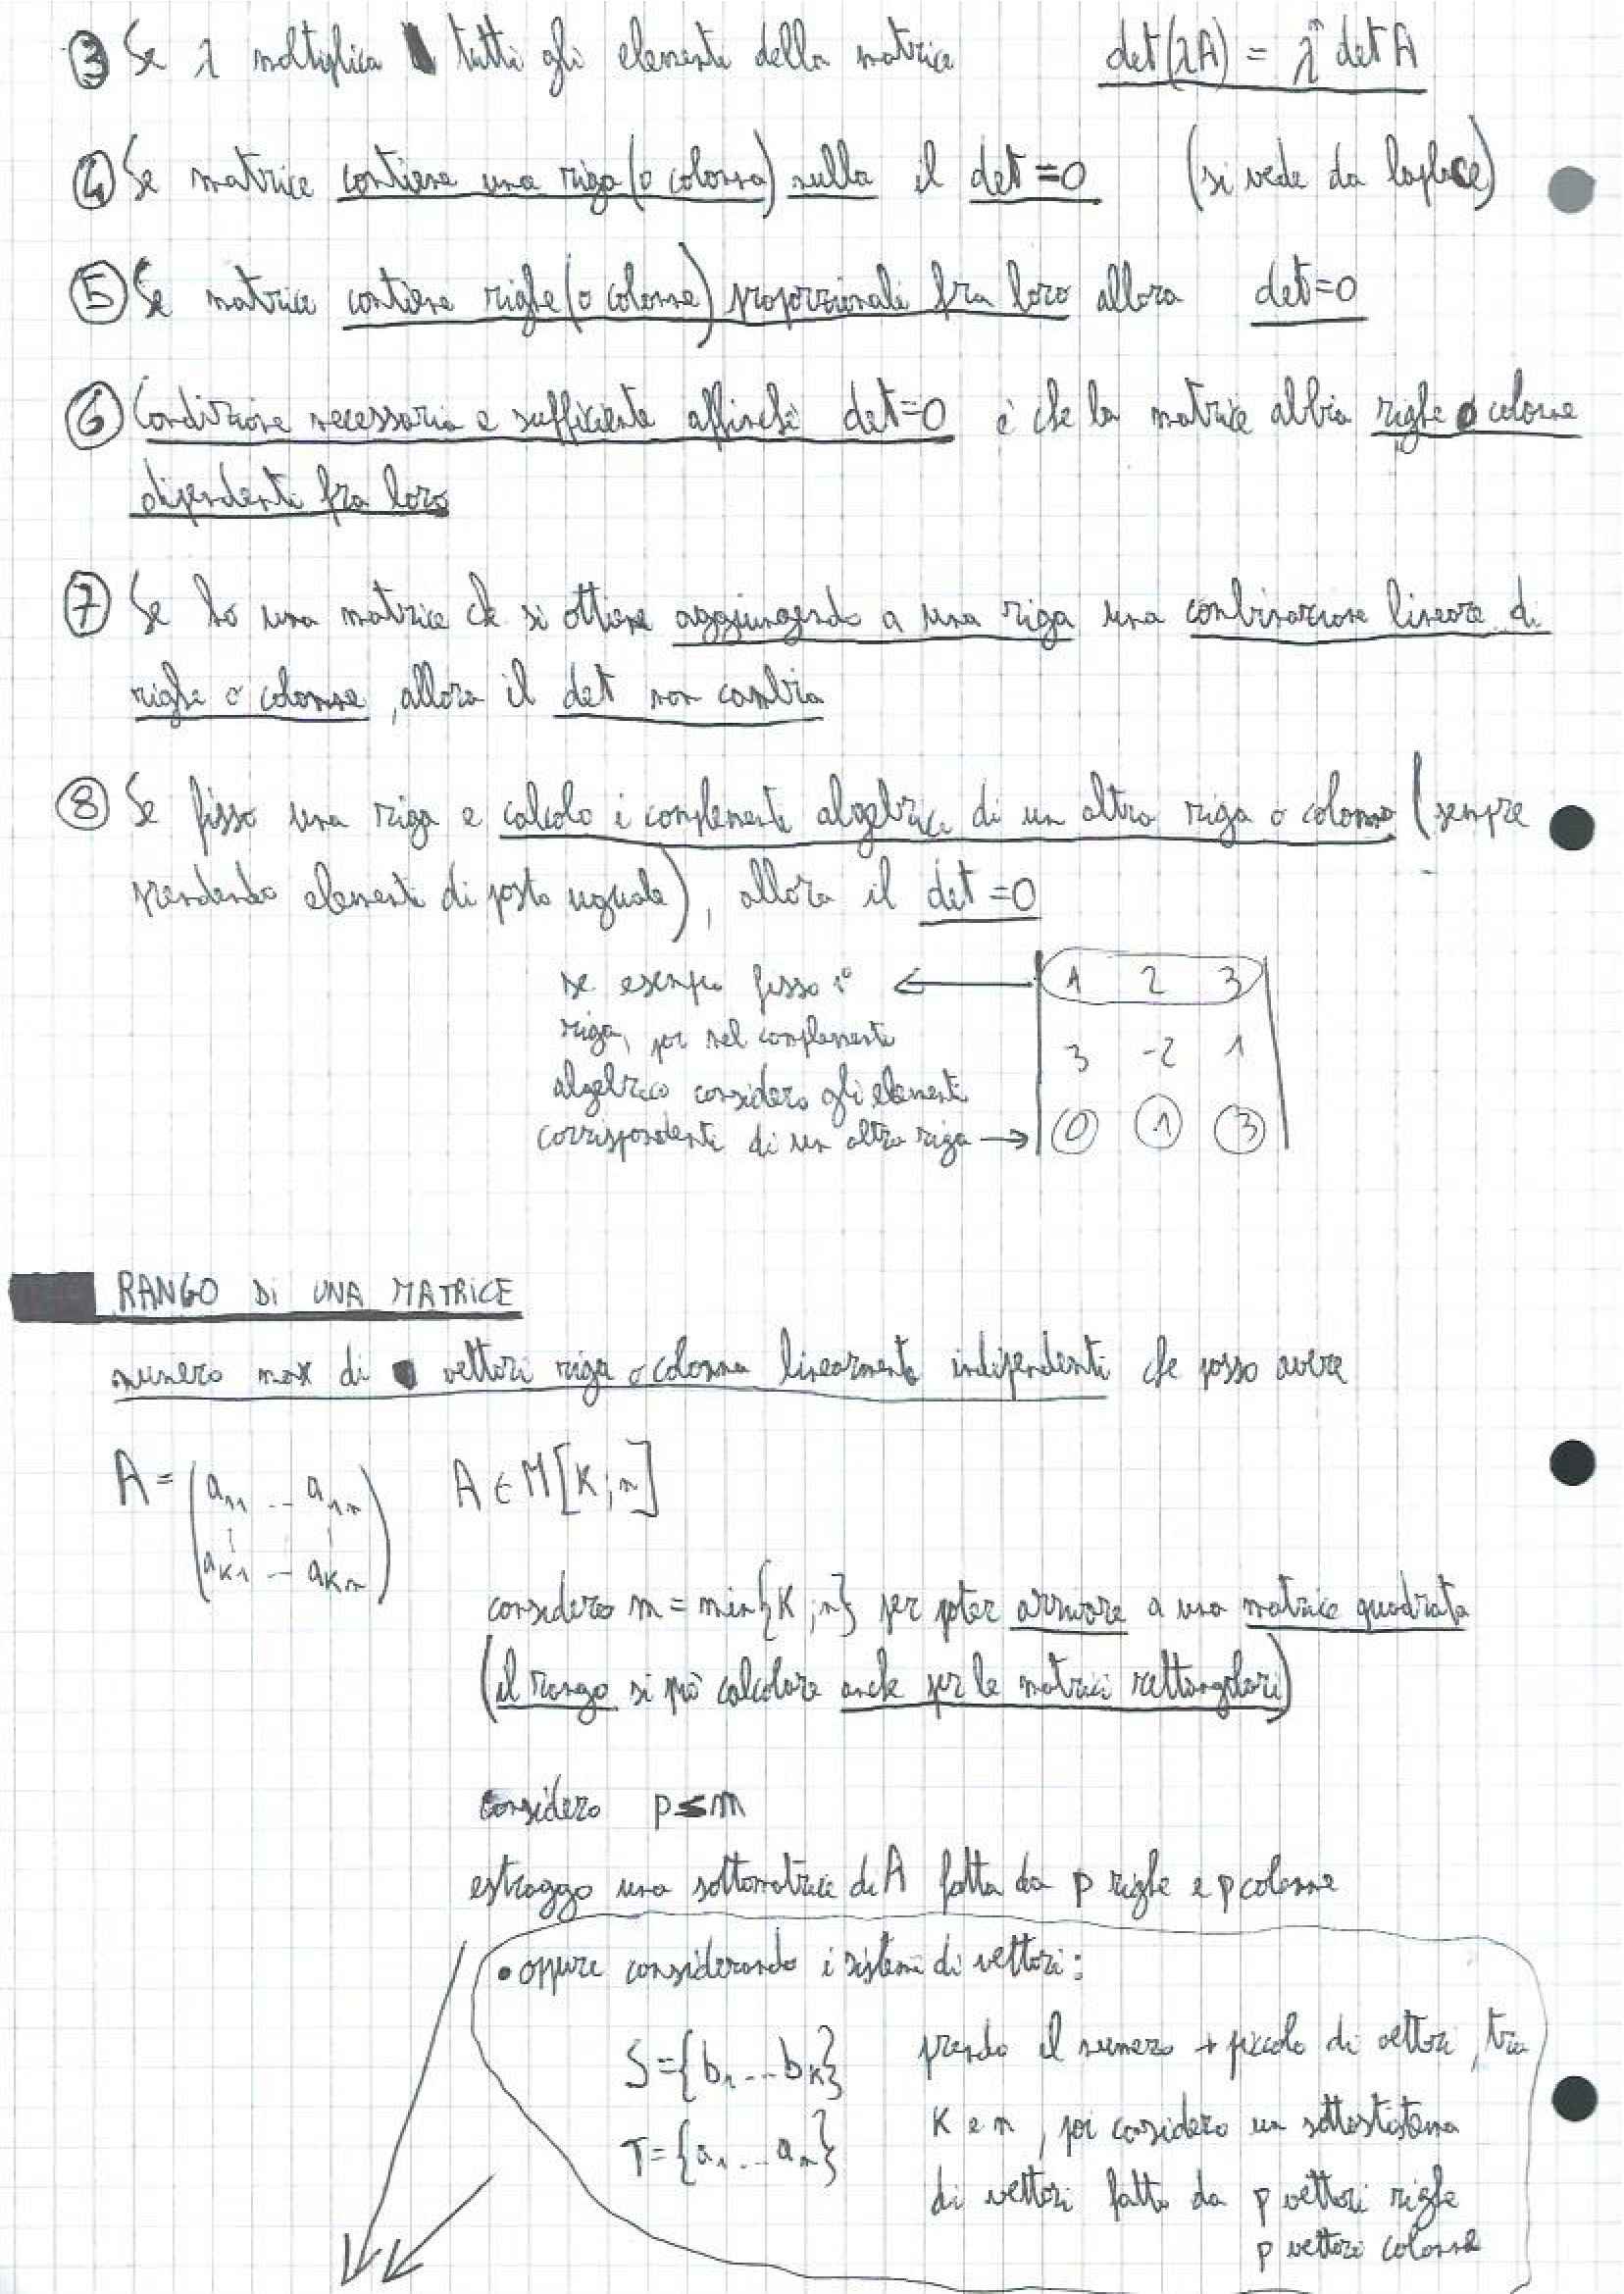 ③ Se λ moltiplica tutti gli elementi della matrice det(λA) = λⁿ det A
④ Se matrice contiene una riga (o colonna) nulla il det=0 (si vede da laplace)
⑤ Se matrice contiene righe (o colonne) proporzionali fra loro allora det=0
⑥ Condizione necessaria e sufficiente affinché det=0 è che la matrice abbia righe o colonne
dipendenti fra loro
⑦ Se ho una matrice che si ottiene aggiungendo a una riga una combinazione lineare di
righe o colonne, allora il det non cambia
⑧ Se fisso una riga e calcolo i complementi algebrici di un altra riga o colonna (sempre
prendendo elementi di posto uguale), allora il det=0
se esempio fisso 1° ← 1 2 3
riga, poi nel complemento
3 -2 1
algebrico considero gli elementi
corrispondenti di un altra riga → 0 1 3
RANGO DI UNA MATRICE
numero max di vettori riga o colonna linearmente indipendenti che posso avere
A = (a₁₁ ... a₁ₙ A ∈ M[K;n]
aₖ₁ ... aₖₙ)
considero m = min{K;n} per poter arrivare a una matrice quadrata
(il rango si può calcolare anche per le matrici rettangolari)
considero p≤m
estraggo una sottomatrice di A fatta da p righe e p colonne
• oppure considerando i sistemi di vettori:
S={b₁...bₖ} prendo il numero + piccolo di vettori, tra
K e n, poi considero un sottosistema
T={a₁...aₙ}
di vettori fatto da p vettori righe
p vettori colonne